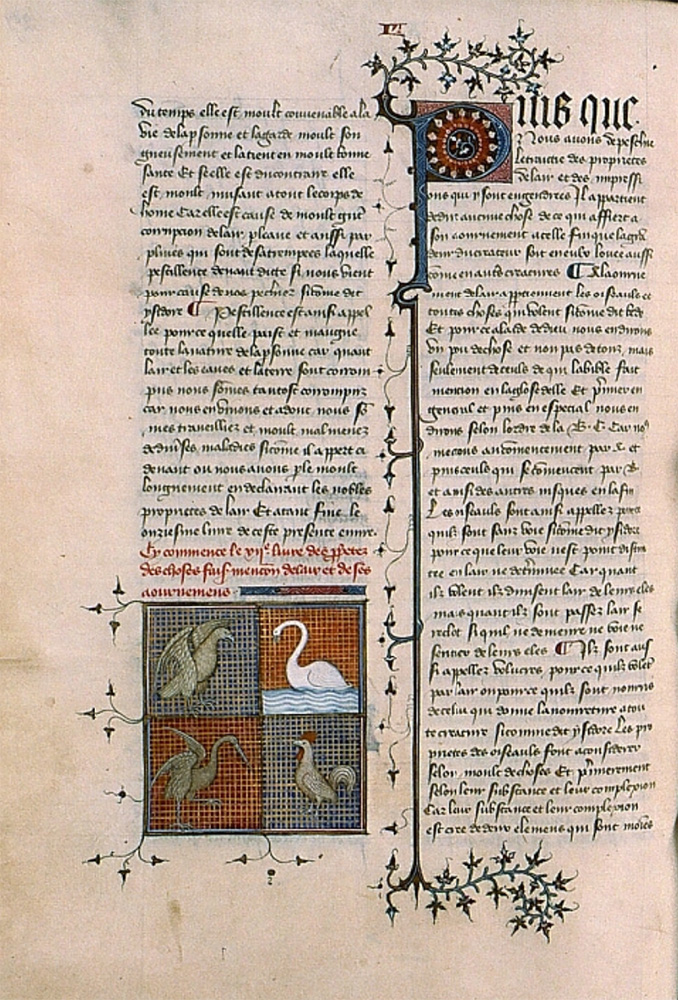 du temps elle est moult couvenable ala
vie dela psonne et la garde moult son
gneusement et la tient en moult bonne
sante Et selle est du contraire elle
est moult nuisant a tout le corps de
home Car elle est cause de moult gnt
corrupcion de lair pleave et aussi par
pluies qui sont desatrempees laquelle
pestillence devant dicte si nous vient
pour cause de nos pechiez sicome dit
ysidore ¶ Pestillence est ausi appel
lee pour ce quelle paist et mangue
toute la nature dela psonne car quant
lair et les eaues et la terre sont corrom
pus nous somes tantost corrompuz
car nous en vivons et adont nous so
mes travelliez et moult mal menez
de divses maladies sicome il appert ci
devant ou nous avons ple moult
longuement en declairant les nobles
proprietes de lair Et atant fine le
onziesme livre de ceste presente euvre.
Cy commence le xije livre des ppetez
des choses fais mencion delair et de ses
aournemens
Puis que
Nous avons depeschie
le traictie des proprietes
de lair et des impressi
ons qui y sont engendrees Il appartient
a dire aucune chose de ce qui affiert a
son aournement acelle fin que la gra
deur du createur soit en eulx louee aussi
come en autres creatures ¶ A laourne
ment de lair appartiennent les oiseaulx et
toutes choses qui volent sicome dit bede
Et pour ce a laide de dieu nous en dirons
un pou de chose et non pas de touz mais
seulement de ceulz de qui la bible fait
mencion en la glose delle Et pmier en
general et puis en especial nous en
dirons selon lordre de la .B. C. Car no9
mecons au comencement par A et
puis ceulz qui se comencent par B
et ainsi des autres iusques en la fin
Les oiseaulx sont ainsi appellez pour ce
quilz sont sanz voie sicome dit ysidore
pour ce que leur voie nest point distin
tee en lair ne determinee Car quant
ilz volent ilz divisent lair de leurs eles
mais quant ilz sont passez lair se
reclot si quil ne demeure ne voie ne
sentier de leurs eles ¶ Ilz sont aussi
si appellez volucres pour ce quilz volet
par lair ou pour ce quilz sont nourris
de celui qui donne la nourreture a tou
te creature sicomme dit ysidore Les pro
prietes des oiseaulx sont a considerer
selon moult de choses Et pmierement
selon leur substance et leur complexion
Car leur substance et leur complexion
est cree de deux elemens qui sont moiens